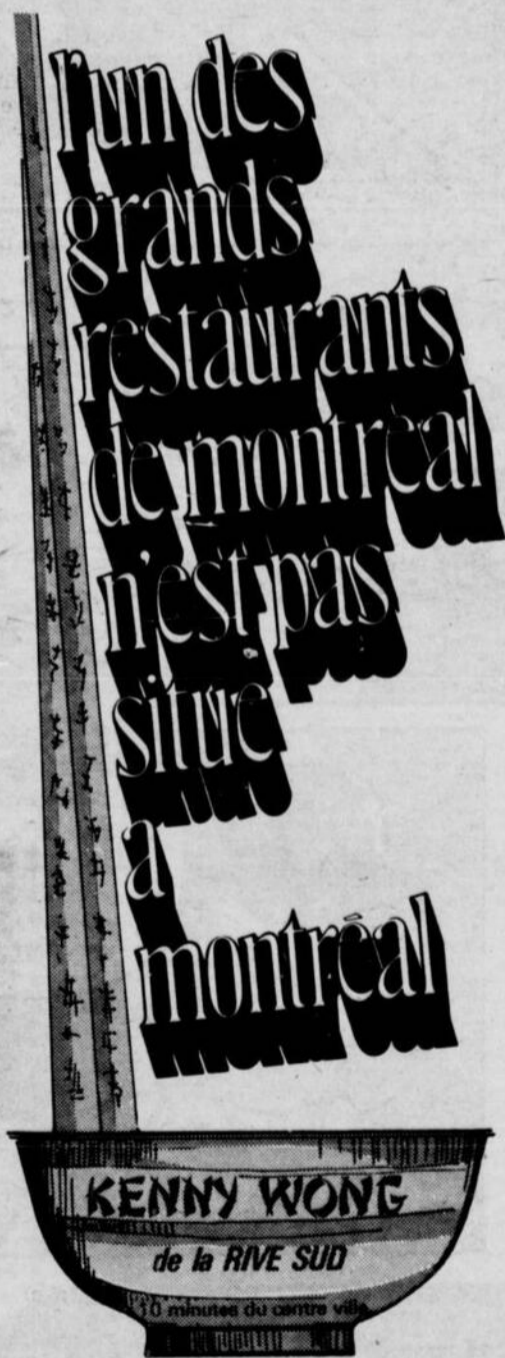 l'un des
grands
restaurants
de montréal
n'est pas
situé
a
montréal
KENNY WONG
de la RIVE SUD
10 minutes du centre ville